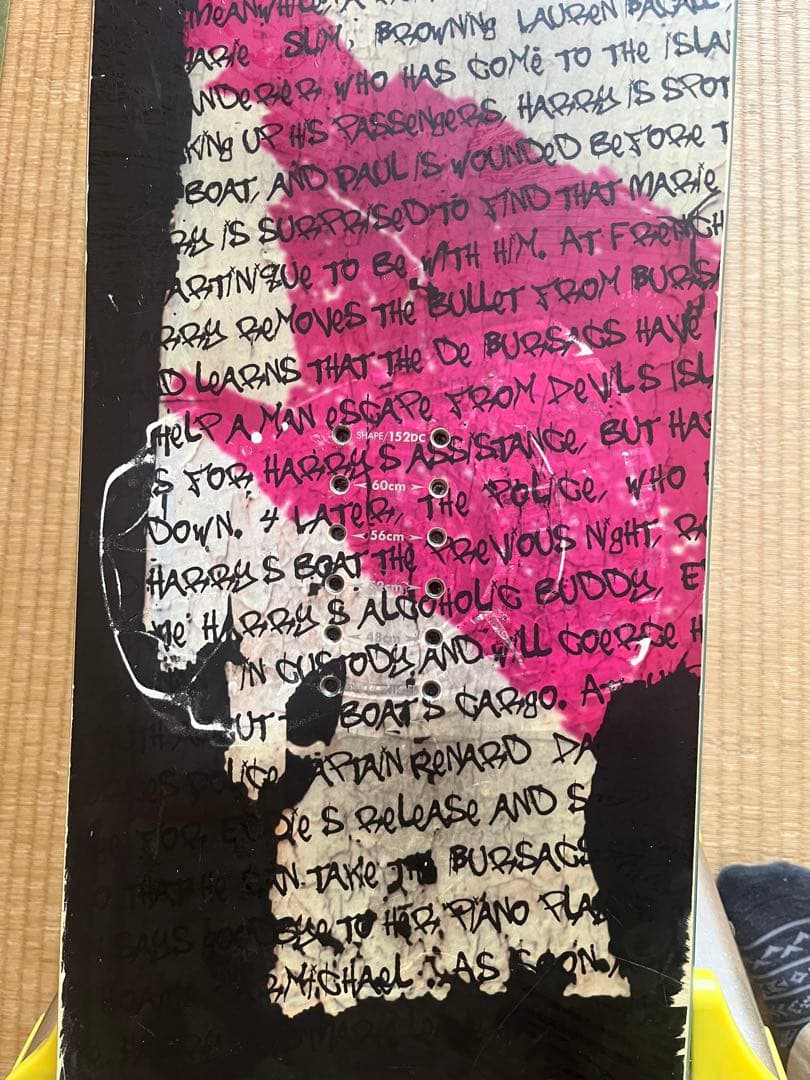 MEANWHILE, A
MARIE "SLIM" BROWNING LAUREN BACALL
ANDERER WHO HAS COME TO THE ISLAN
KING UP HIS PASSENGERS, HARRY IS SPOT
BOAT, AND PAUL IS WOUNDED BEFORE T
RY IS SURPRISED TO FIND THAT MARIE
ARTINIQUE TO BE WITH HIM. AT FRENCH
RRY REMOVES THE BULLET FROM BURSA
D LEARNS THAT THE DE BURSACS HAVE
HELP A MAN ESCAPE FROM DEVILS ISL
SHAPE/152DC
S FOR HARRY S ASSISTANCE, BUT HA
60cm
DOWN. 4 LATER, THE POLICE, WHO
56cm
HARRY S BOAT THE PREVIOUS NIGHT, R
52cm
ME HARRY S ALCOHOLIC BUDDY, E
48cm
IN CUSTODY AND WILL COERCE H
UT BOAT S CARGO. A
ES POLICE APTAIN RENARD DA
FOR EDDIE S RELEASE AND S
THAT HE CAN TAKE THE BURSACS
SAYS GOODBYE TO HER PIANO PLA
RMICHAEL . AS SOON